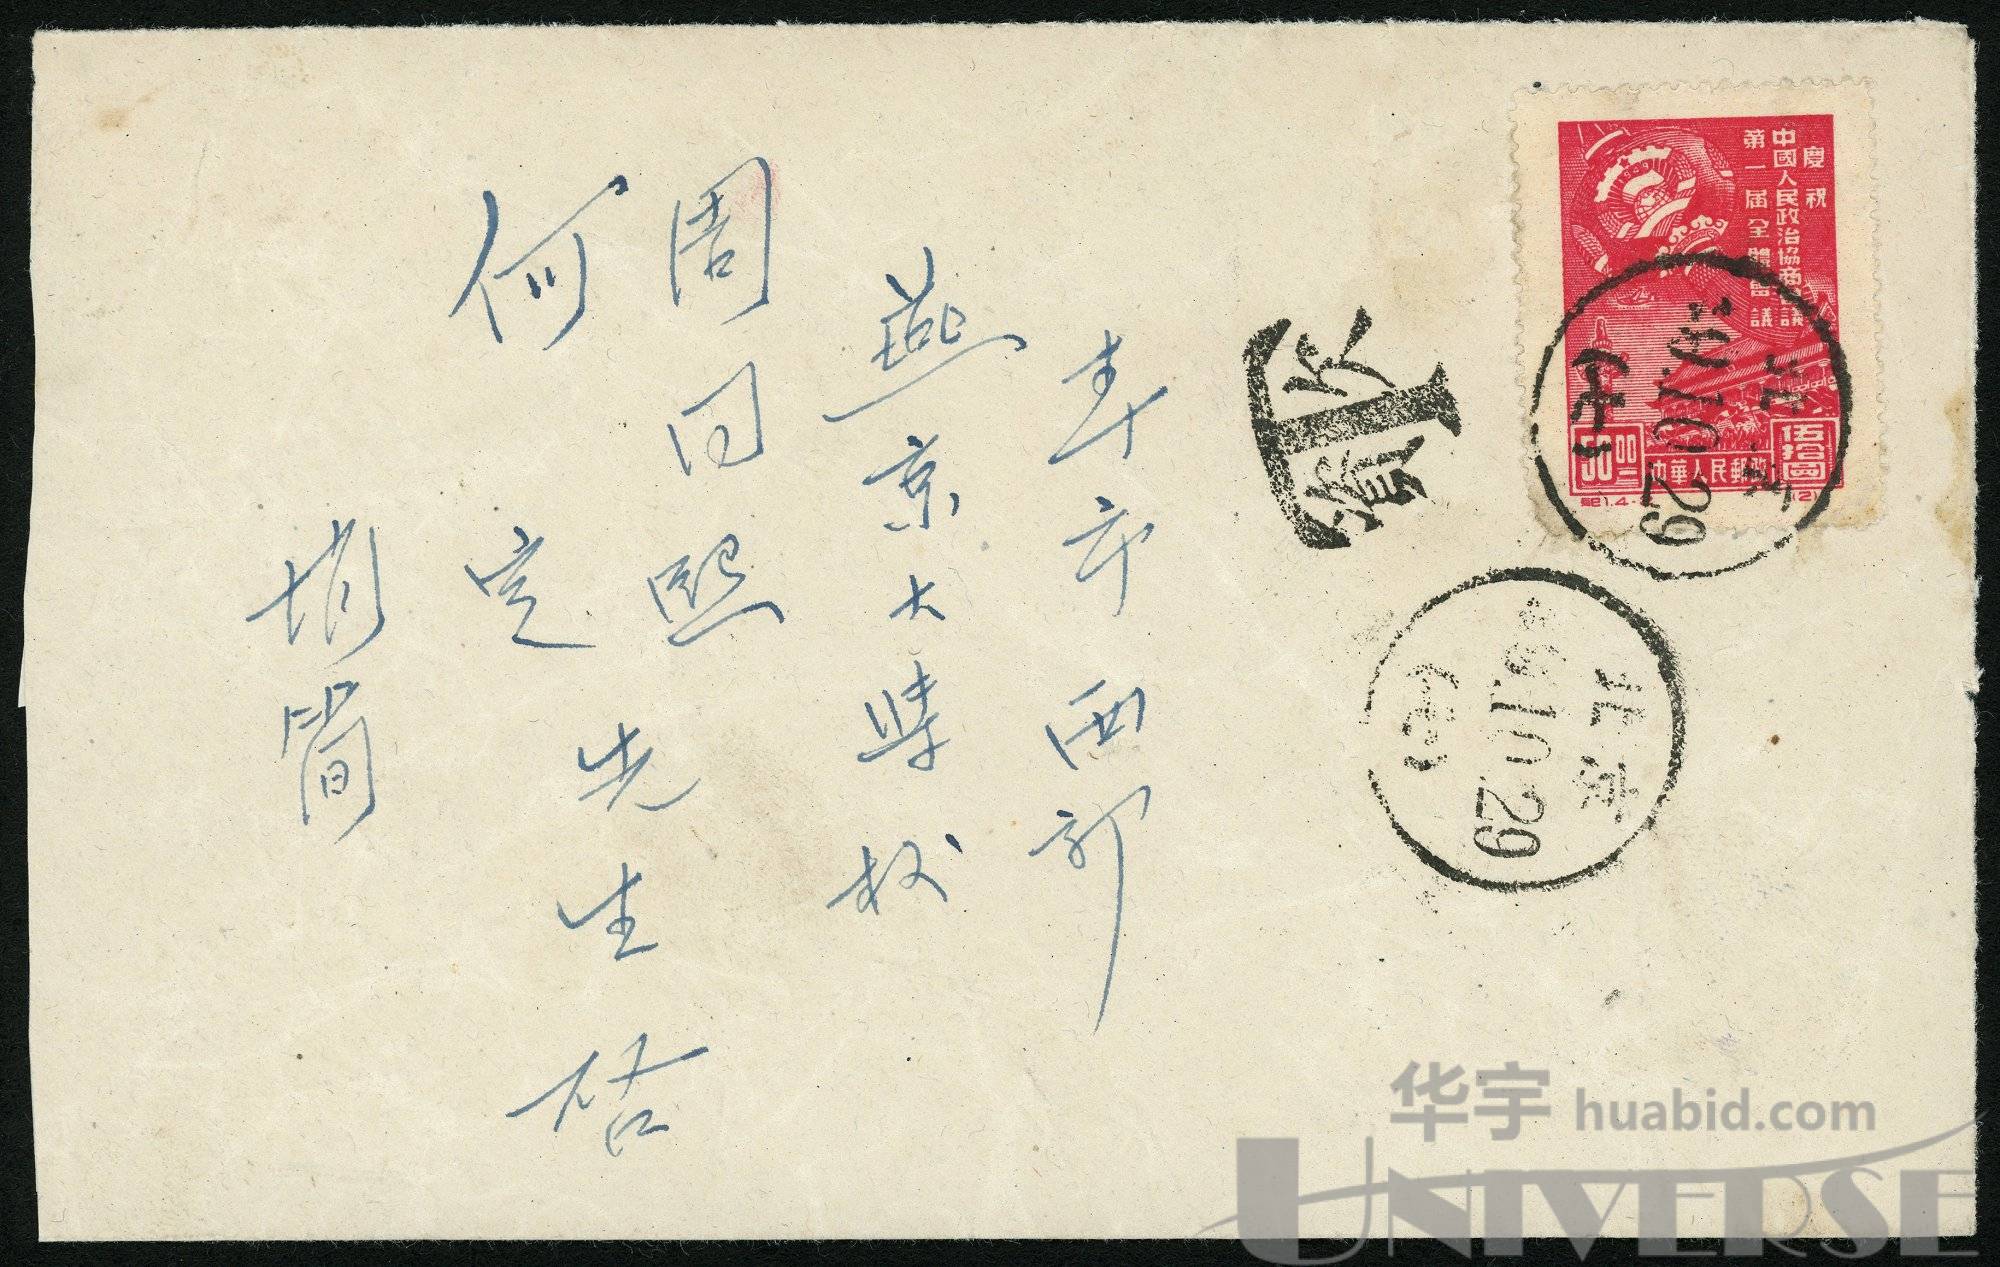 慶祝
中國人民政治協商會議
第一屆全體會議
伍拾圓
中華人民郵政
50.00
紀1.4-
(2)
北京
49.10.29
欠資
北京
49.10.29
本市西郊
燕京大學校
周 同 熙
何 定 先生啓
華宇 huabid.com
UNIVERSE